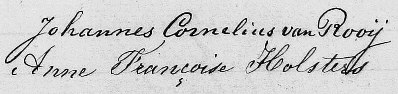 Johannes Cornelius van Rooij
Anne Françoise Holsters